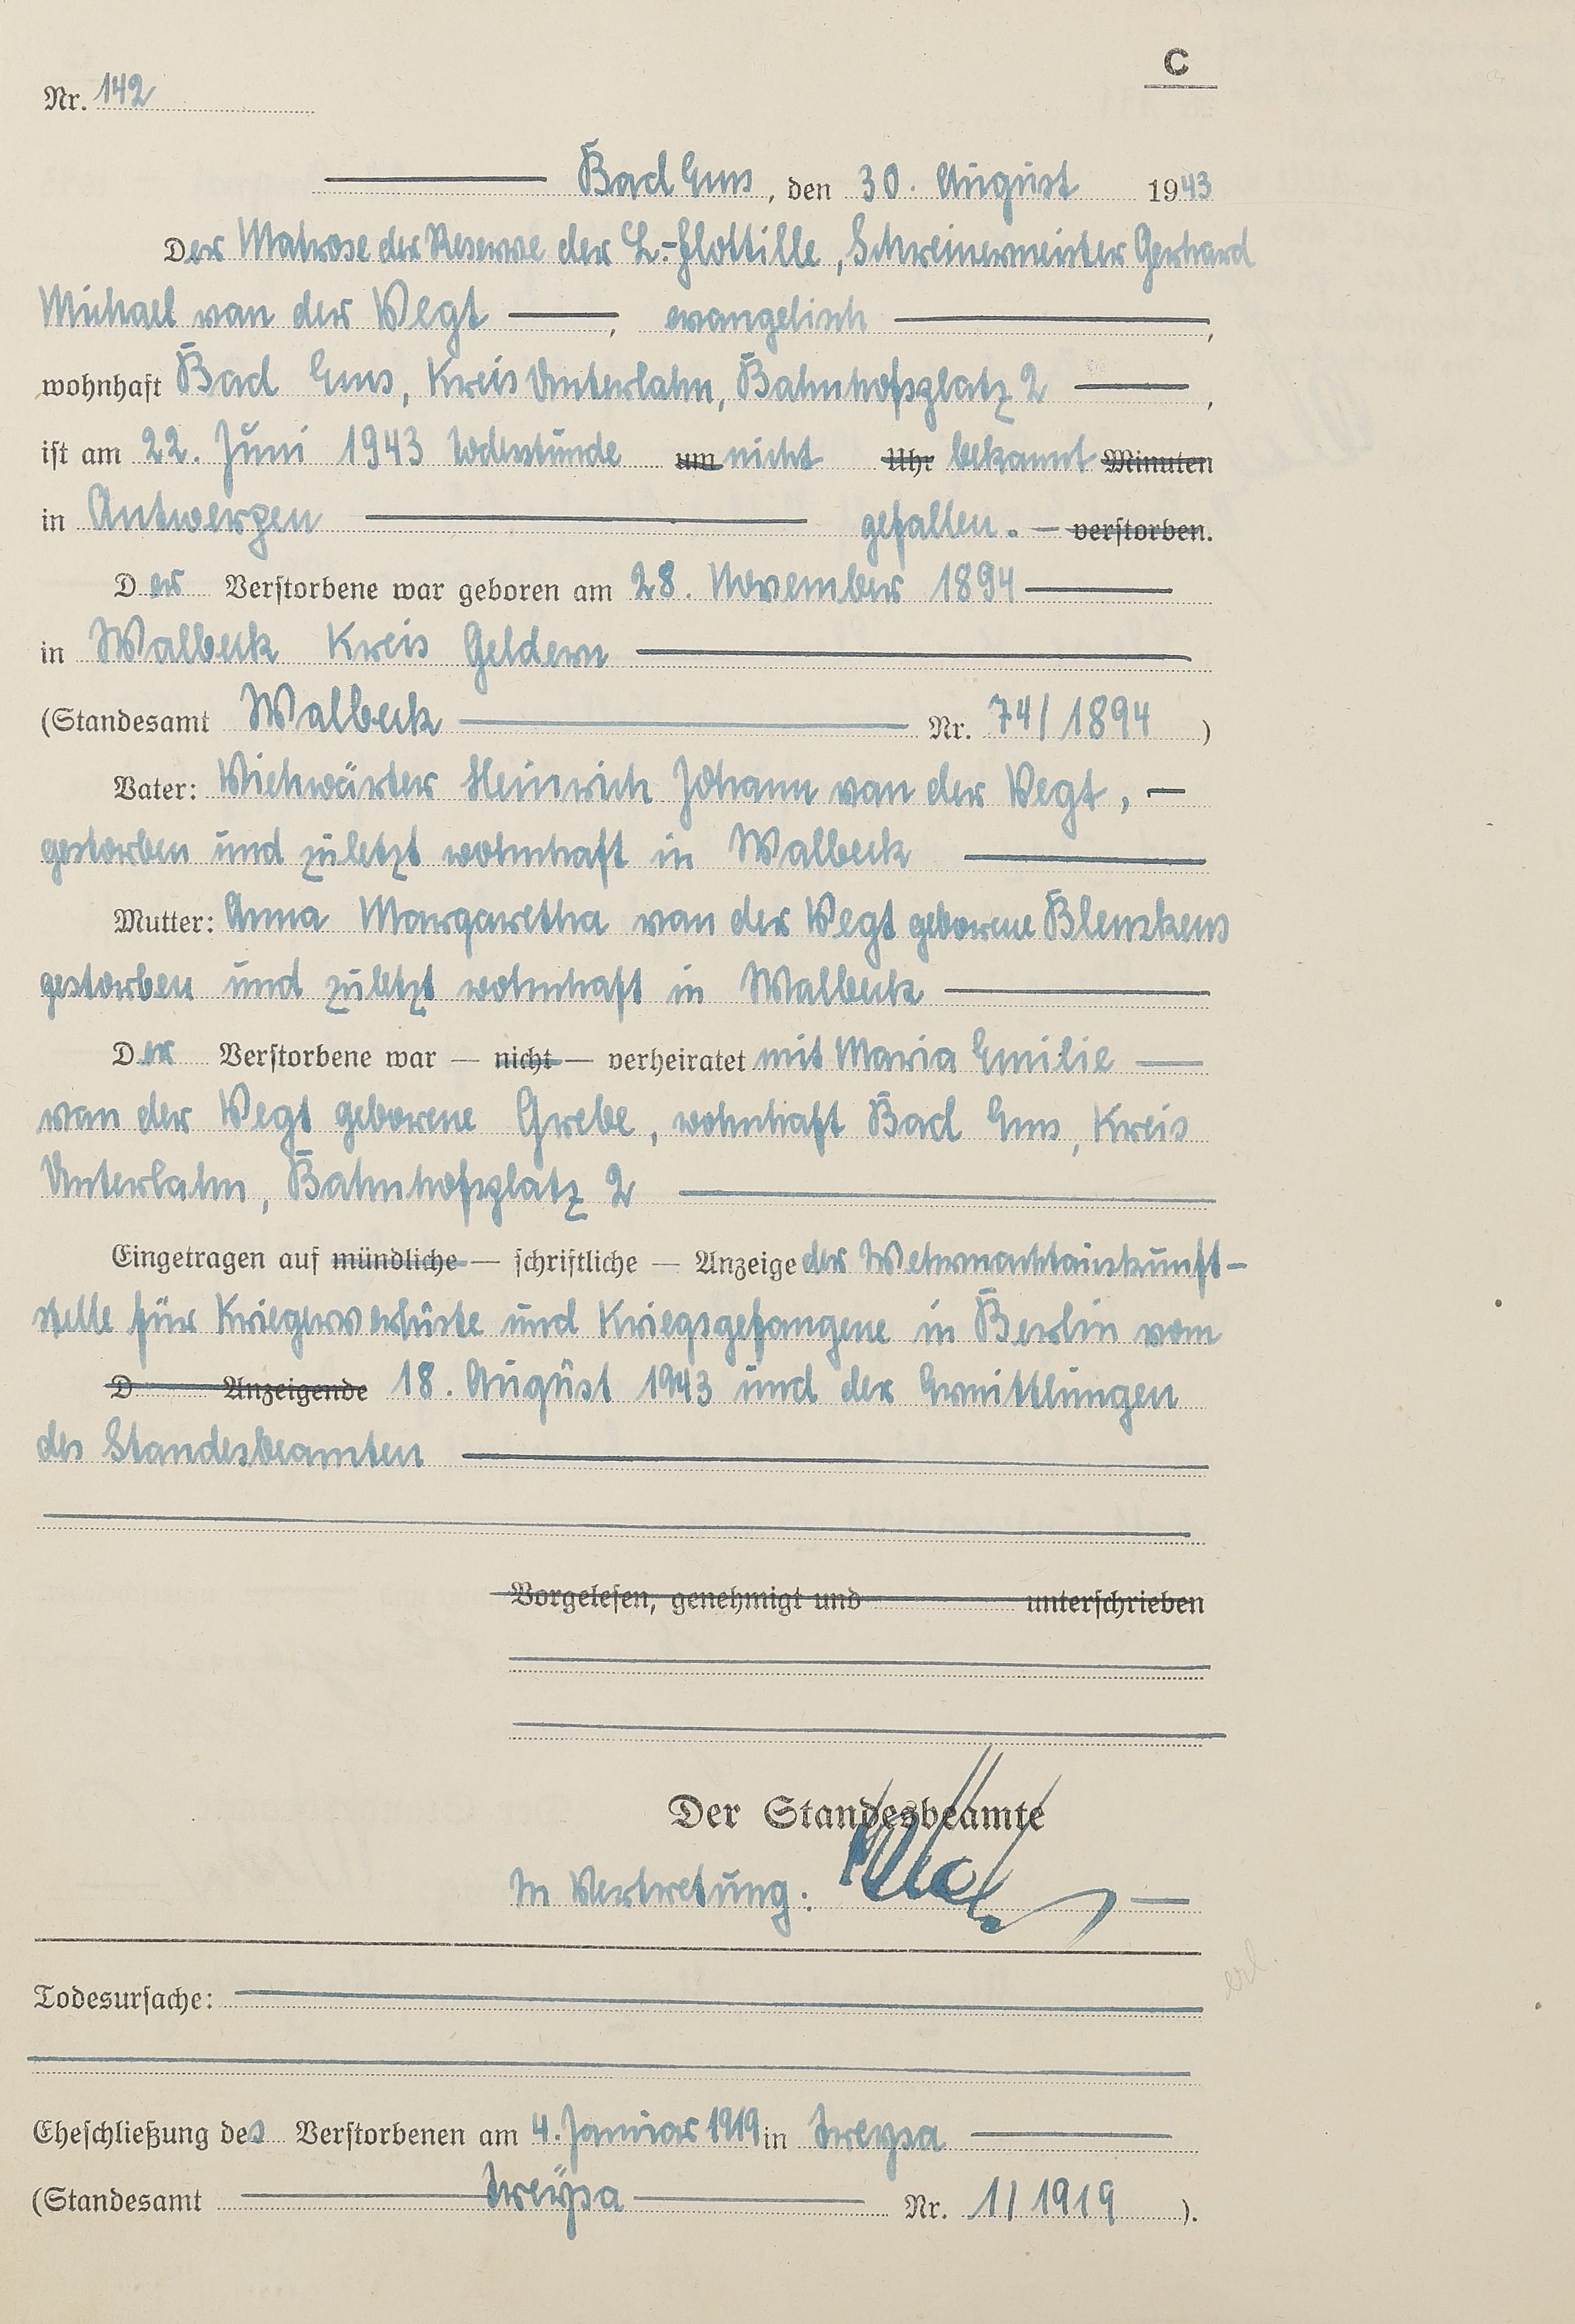 C
Nr. 142
Bad Ems, den 30. August 1943
Der Matrose der Reserve der L.-Flottille, Schreinermeister Gerhard
Michael van der Vegt, evangelisch,
wohnhaft Bad Ems, Kreis Unterlahn, Bahnhofsplatz 2,
ist am 22. Juni 1943 Todesstunde um nicht Uhr bekannt Minuten
in Antwerpen gefallen. — verstorben.
Der Verstorbene war geboren am 28. November 1894
in Walbeck Kreis Geldern
(Standesamt Walbeck Nr. 74/1894)
Vater: Viehwärter Heinrich Johann van der Vegt, —
gestorben und zuletzt wohnhaft in Walbeck
Mutter: Anna Margaretha van der Vegt geborene
gestorben und zuletzt wohnhaft in Walbeck
Der Verstorbene war — nicht — verheiratet mit Maria Emilie —
van der Vegt geborene Grebe, wohnhaft Bad Ems, Kreis
Unterlahn, Bahnhofsplatz 2
Eingetragen auf mündliche — schriftliche — Anzeige der Wehrmachtauskunft-
stelle für Kriegerverluste und Kriegsgefangene in Berlin vom
D Anzeigende 18. August 1943 und der Ermittlungen
des Standesbeamten
Vorgelesen, genehmigt und unterschrieben
Der Standesbeamte
In Vertretung:
erl.
Todesursache:
Eheschließung des Verstorbenen am 4. Januar 1919 in Treysa
(Standesamt Treysa Nr. 1/1919).